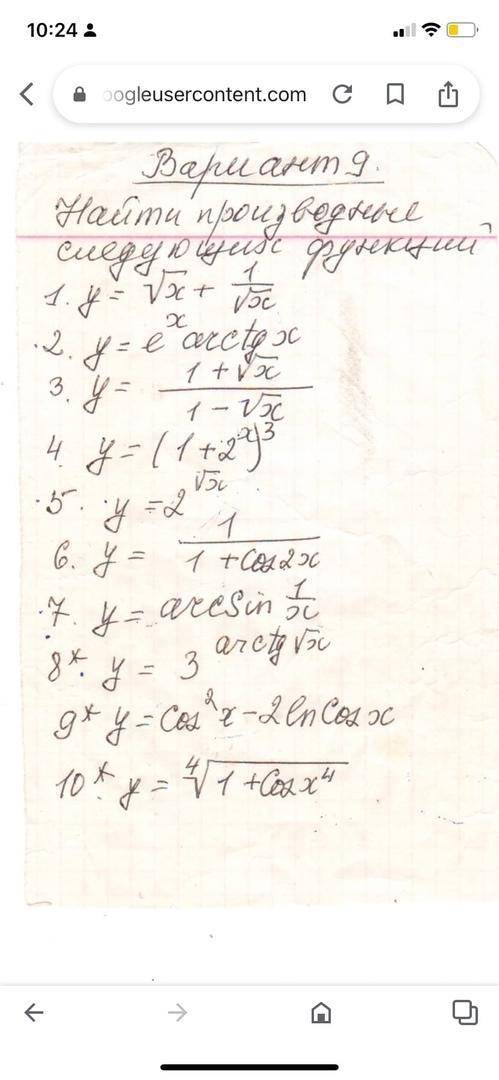 10:24
oogleusercontent.com
Вариант 9.
Найти производные
следующих функций
1. y = √x + 1/√x
2. y = e^x arctg x
3. y = (1 + √x)/(1 - √x)
4. y = (1 + 2^x)^3
5. y = 2^√x
6. y = 1/(1 + Cos 2x)
7. y = arcSin 1/x
8*. y = 3^arctg √x
9* y = Cos^2 x - 2 ln Cos x
10*. y = ⁴√(1 + Cos x^4)